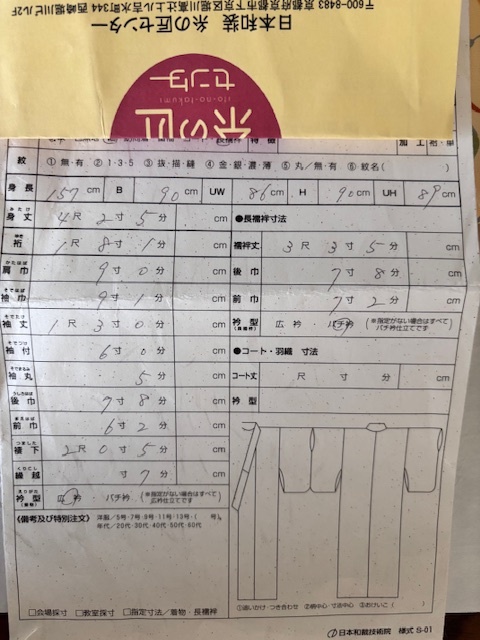 〒600-8483 京都府京都市下京区堀川通仏光寺上ル吉水町344 西崎堀川ビル2F
日本和装 糸の匠センター
糸の匠
センター
ito-no-takumi
紋 ①無・有 ②1・3・5 ③抜・描・縫 ④金・銀・濃・薄 ⑤丸/無・有 ⑥紋名( )
身長 157 cm B 90 cm UW 86 cm H 90 cm UH 89 cm
身丈 4尺2寸5分 cm
裄 1尺8寸1分 cm
肩巾 9寸0分 cm
袖巾 9寸1分 cm
袖丈 1尺3寸0分 cm
袖付 6寸0分 cm
袖丸 5分 cm
後巾 7寸8分 cm
前巾 6寸2分 cm
褄下 2尺0寸5分 cm
繰越 寸7分 cm
衿型 広衿・バチ衿 (※指定がない場合はすべて広衿仕立てです)
●長襦袢寸法
襦袢丈 3尺3寸5分 cm
後巾 7寸8分 cm
前巾 7寸2分 cm
衿型 広衿・バチ衿 (※指定がない場合はすべてバチ衿仕立てです)
●コート・羽織 寸法
コート丈 尺 寸 分 cm
衿型
《備考及び特別注文》 洋服/5号・7号・9号・11号・13号・( 号)
年代/20代・30代・40代・50代・60代
□会場採寸 □教室採寸 □指定寸法/着物・長襦袢
①追いかけ・つき合わせ ②柄中心・寸法中心 ③おけいこ( )
日本和裁技術院 様式 S-01